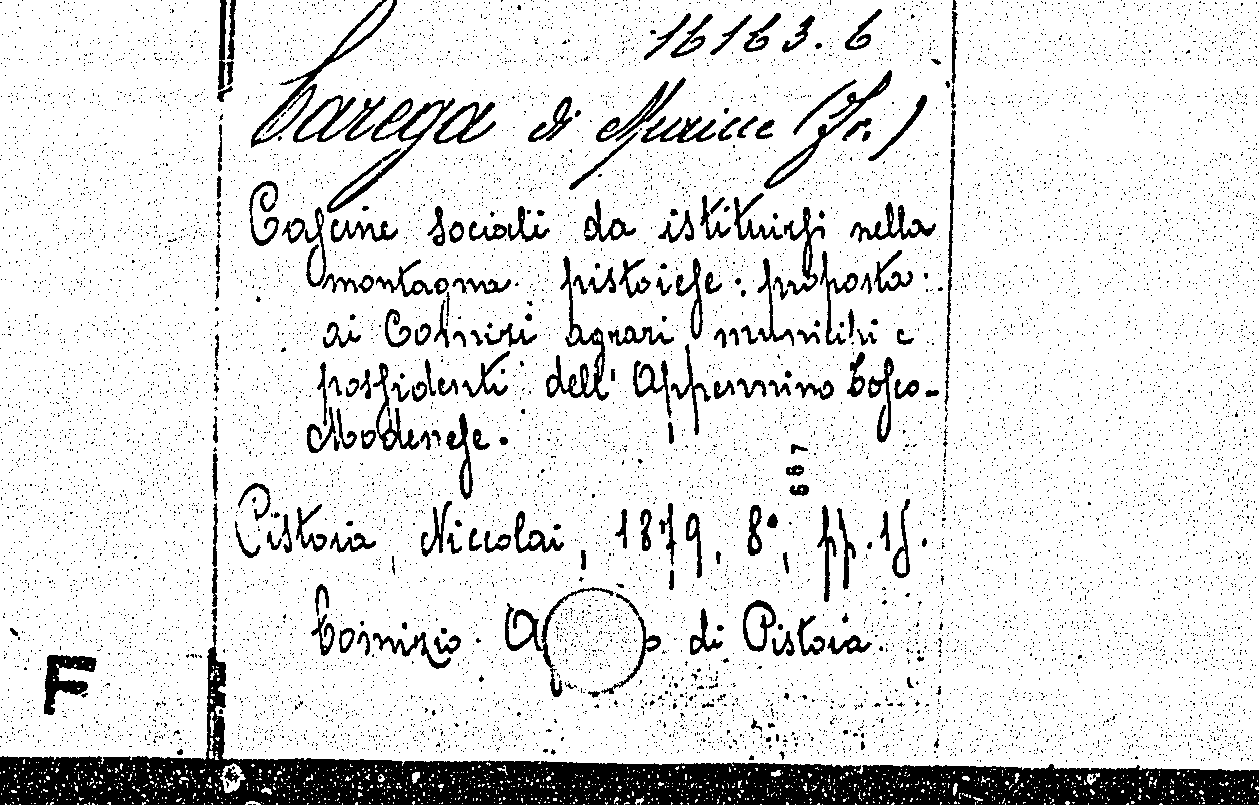 16163.6
Carega di Muricce (Fr.)
Cascine sociali da istituirsi nella
montagna pistoiese: proposta
ai Comizi agrari municipi e
possidenti dell' Appennino Tosco-
Modenese.
667
Pistoia, Niccolai, 1879, 8°, pp. 15.
Comizio A o di Pistoia.
F